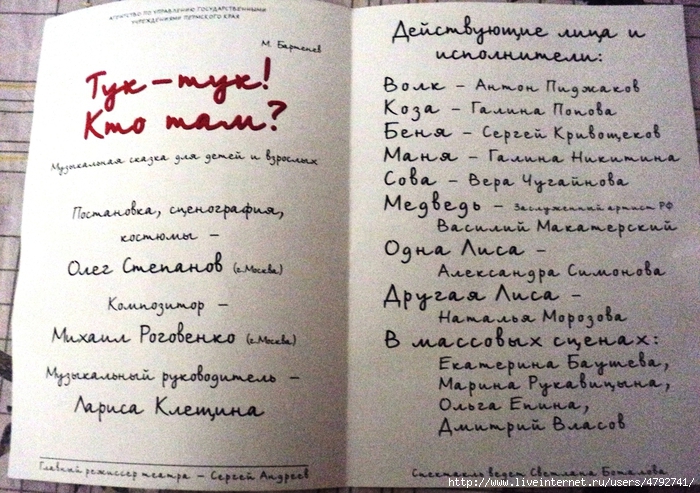 АГЕНТСТВО ПО УПРАВЛЕНИЮ ГОСУДАРСТВЕННЫМИ
УЧРЕЖДЕНИЯМИ ПЕРМСКОГО КРАЯ
М. Бартенев
Тук-тук!
Кто там?
Музыкальная сказка для детей и взрослых
Постановка, сценография,
костюмы –
Олег Степанов (г.Москва)
Композитор –
Михаил Роговенко (г.Москва)
Музыкальный руководитель –
Лариса Клещина
Главный режиссер театра – Сергей Андреев
Действующие лица и
исполнители:
Волк – Антон Пиджаков
Коза – Галина Попова
Беня – Сергей Кривощеков
Маня – Галина Никитина
Сова – Вера Чугайнова
Медведь – Заслуженный артист РФ
Василий Макатерский
Одна Лиса –
Александра Симонова
Другая Лиса –
Наталья Морозова
В массовых сценах:
Екатерина Баушева,
Марина Рукавицына,
Ольга Епина,
Дмитрий Власов
Спектакль ведет Светлана Боталова
http://www.liveinternet.ru/users/4792741/